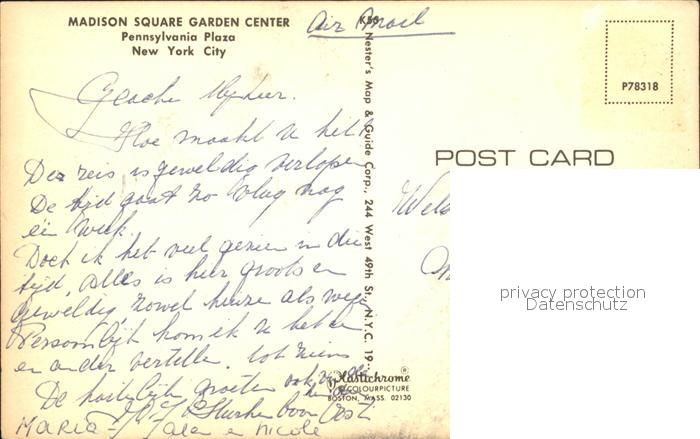 MADISON SQUARE GARDEN CENTER
Pennsylvania Plaza
New York City
Air Mail
K56
Nester's Map & Guide Corp., 244 West 49th St., N.Y.C. 19
P78318
POST CARD
Geachte Mijnheer.
Hoe maakt U het
De reis is geweldig verlopen
De tijd gaat zo vlug nog
één week.
Doch ik heb veel gezien in die
tijd, alles is hier groots en
geweldig, zowel huize als wege
Persoonlijk kom ik U het
en ander vertellen. tot ziens
De hartelijke groeten ook
MARIA
Nicole
Plastichrome®
COLOURPICTURE
BOSTON, MASS. 02130
privacy protection
Datenschutz